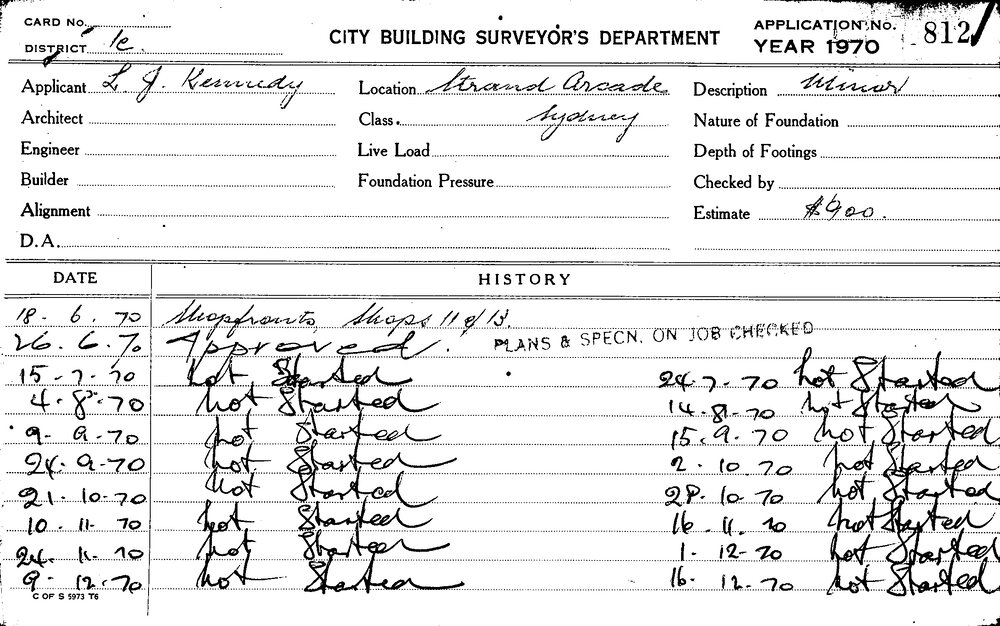 CARD No.
DISTRICT 1c.
CITY BUILDING SURVEYOR'S DEPARTMENT
APPLICATION No. 812
YEAR 1970
Applicant L. J. Kennedy Location Strand Arcade Description Minor
Architect Class. Sydney Nature of Foundation
Engineer Live Load Depth of Footings
Builder Foundation Pressure Checked by
Alignment Estimate $900.
D.A.
DATE HISTORY
18. 6. 70 Shopfronts, Shops 11 & 13.
26. 6. 70 Approved. PLANS & SPECN. ON JOB CHECKED
15-7-70 not Started 24-7-70 not Started
4-8-70 not Started 14-8-70 not Started
9-9-70 not Started 15.9.70 not Started
24-9-70 not Started 2-10.70 not Started
21.10-70 not Started 28.10-70 not Started
10.11.70 not Started 16.11.70 not Started
24.11.70 not Started 1-12-70 not Started
9-12-70 not Started 16.12-70 not Started
C OF S 5973 T6